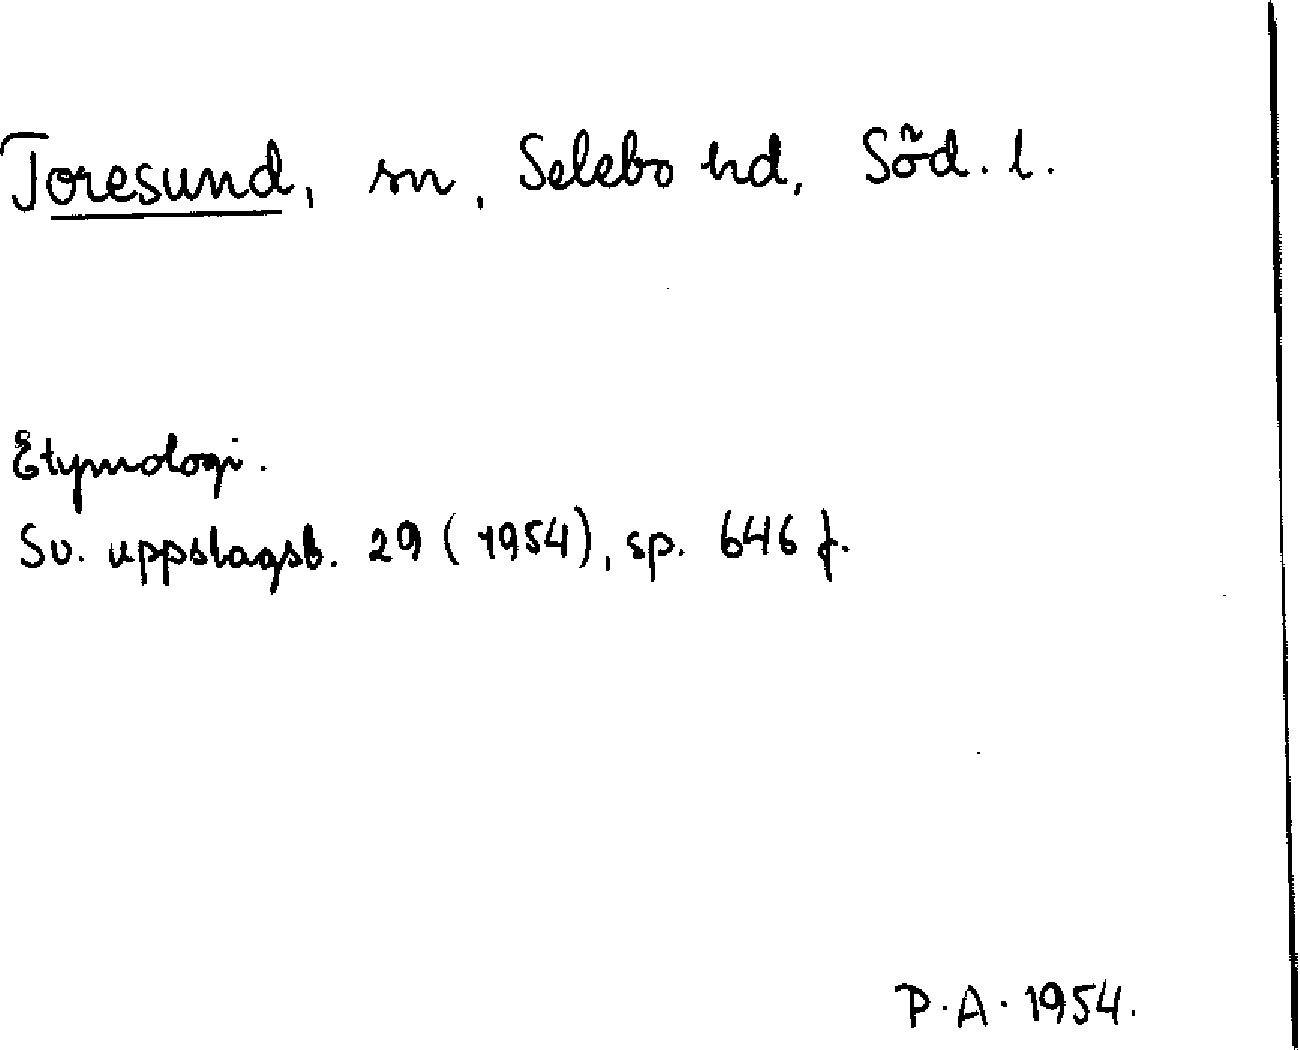 Toresund, sn, Selebo hd, Söd. l.
Etymologi.
Sv. uppslagsb. 29 (1954), sp. 646 f.
P.A. 1954.